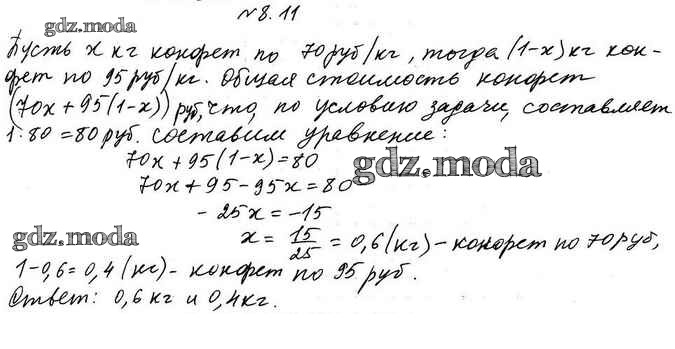 №8.11
gdz.moda
Пусть x кг конфет по 70 руб/кг, тогда (1-x) кг кон-
фет по 95 руб/кг. Общая стоимость конфет
(70x + 95(1-x)) руб, что, по условию задачи, составляет
1·80 = 80 руб. составим уравнение:
70x + 95(1-x) = 80
gdz.moda
70x + 95 - 95x = 80
- 25x = -15
gdz.moda
x = 15/25 = 0,6 (кг) - конфет по 70 руб,
1-0,6 = 0,4 (кг) - конфет по 95 руб.
Ответ: 0,6 кг и 0,4 кг.